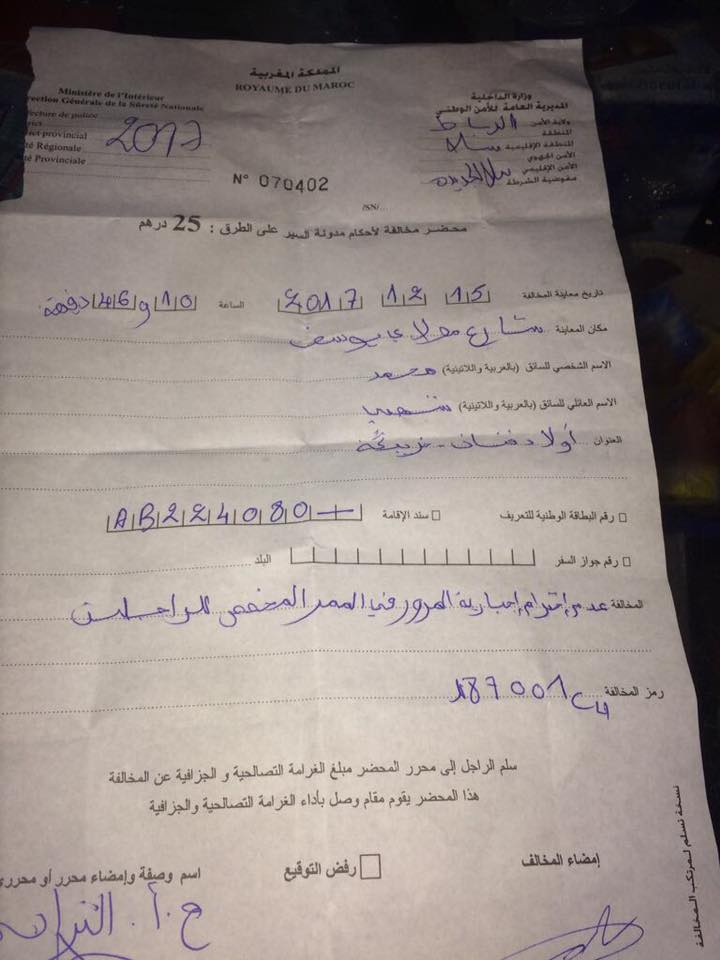 المملكة المغربية
ROYAUME DU MAROC
Ministère de l'Intérieur
rection Générale de la Sûreté Nationale
fecture de police
trict
ct provincial
té Régionale
té Provinciale
2017
وزارة الداخلية
المديرية العامة للأمن الوطني
ولاية الأمن الرباط
المنطقة
المنطقة الإقليمية سلا
الأمن الجهوي
الأمن الإقليمي
مفوضية الشرطة سلا الجديدة
N° 070402
/SN/
محضر مخالفة لأحكام مدونة السير على الطرق : 25 درهم
تاريخ معاينة المخالفة 15 12 2017 الساعة 10 و 46 دقيقة
مكان المعاينة شارع مولاي يوسف
الاسم الشخصي للسائق (بالعربية واللاتينية) محمد
الاسم العائلي للسائق (بالعربية واللاتينية)
العنوان أولاد
رقم البطاقة الوطنية للتعريف سند الإقامة AB224080
رقم جواز السفر البلد
المخالفة عدم إحترام إجبارية المرور في الممر المخصص للراجلين
رمز المخالفة 187001
سلم الراجل إلى محرر المحضر مبلغ الغرامة التصالحية و الجزافية عن المخالفة
هذا المحضر يقوم مقام وصل بأداء الغرامة التصالحية والجزافية
إمضاء المخالف
رفض التوقيع
اسم وصفة وإمضاء محرر أو محرري
نسخة تسلم لمرتكب المخالفة